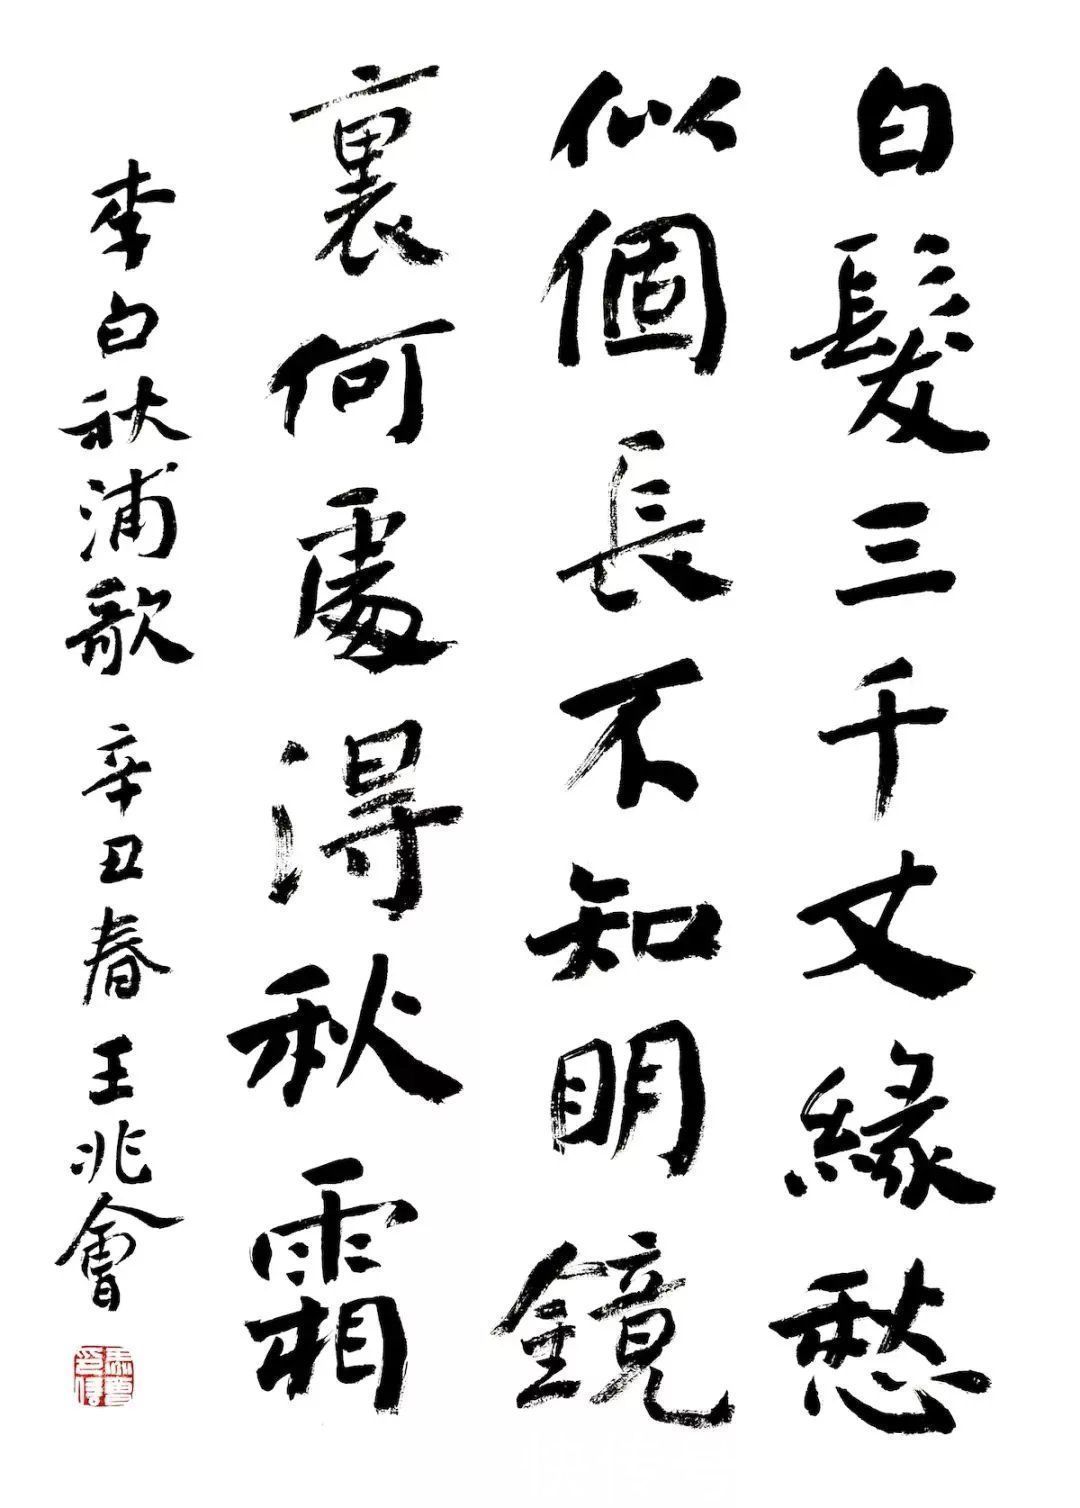 白髮三千丈緣愁
似個長不知明鏡
裏何處得秋霜
李白秋浦歌 辛丑春 王兆會